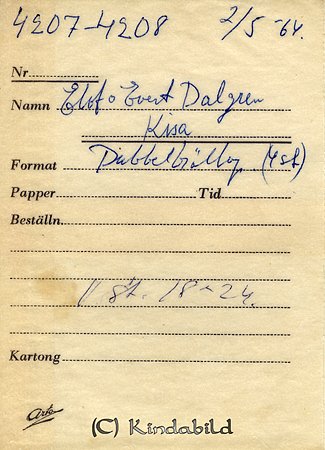 4207-4208 2/5-64.
Nr
Namn Elof o Evert Dalgren
Kisa
Format Dubbelbröllop (4 st)
Papper Tid
Beställn.
1 st. 18-24.
Kartong
Arto
(C) Kindabild